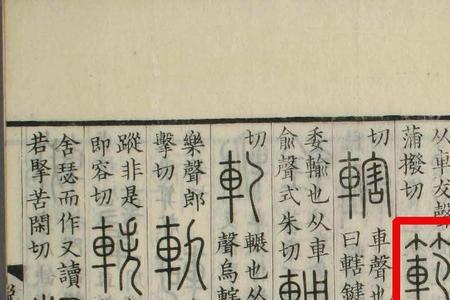 从車犮聲
蒲撥切
範
切
轄
車聲也
曰轄鍵
委輸也从車
俞聲式朱切
切
軋
輾也从
聲烏轄
樂聲郎
擊切
軌
蹤非是
即容切
軼
舍瑟而作又讀
若掔苦閑切